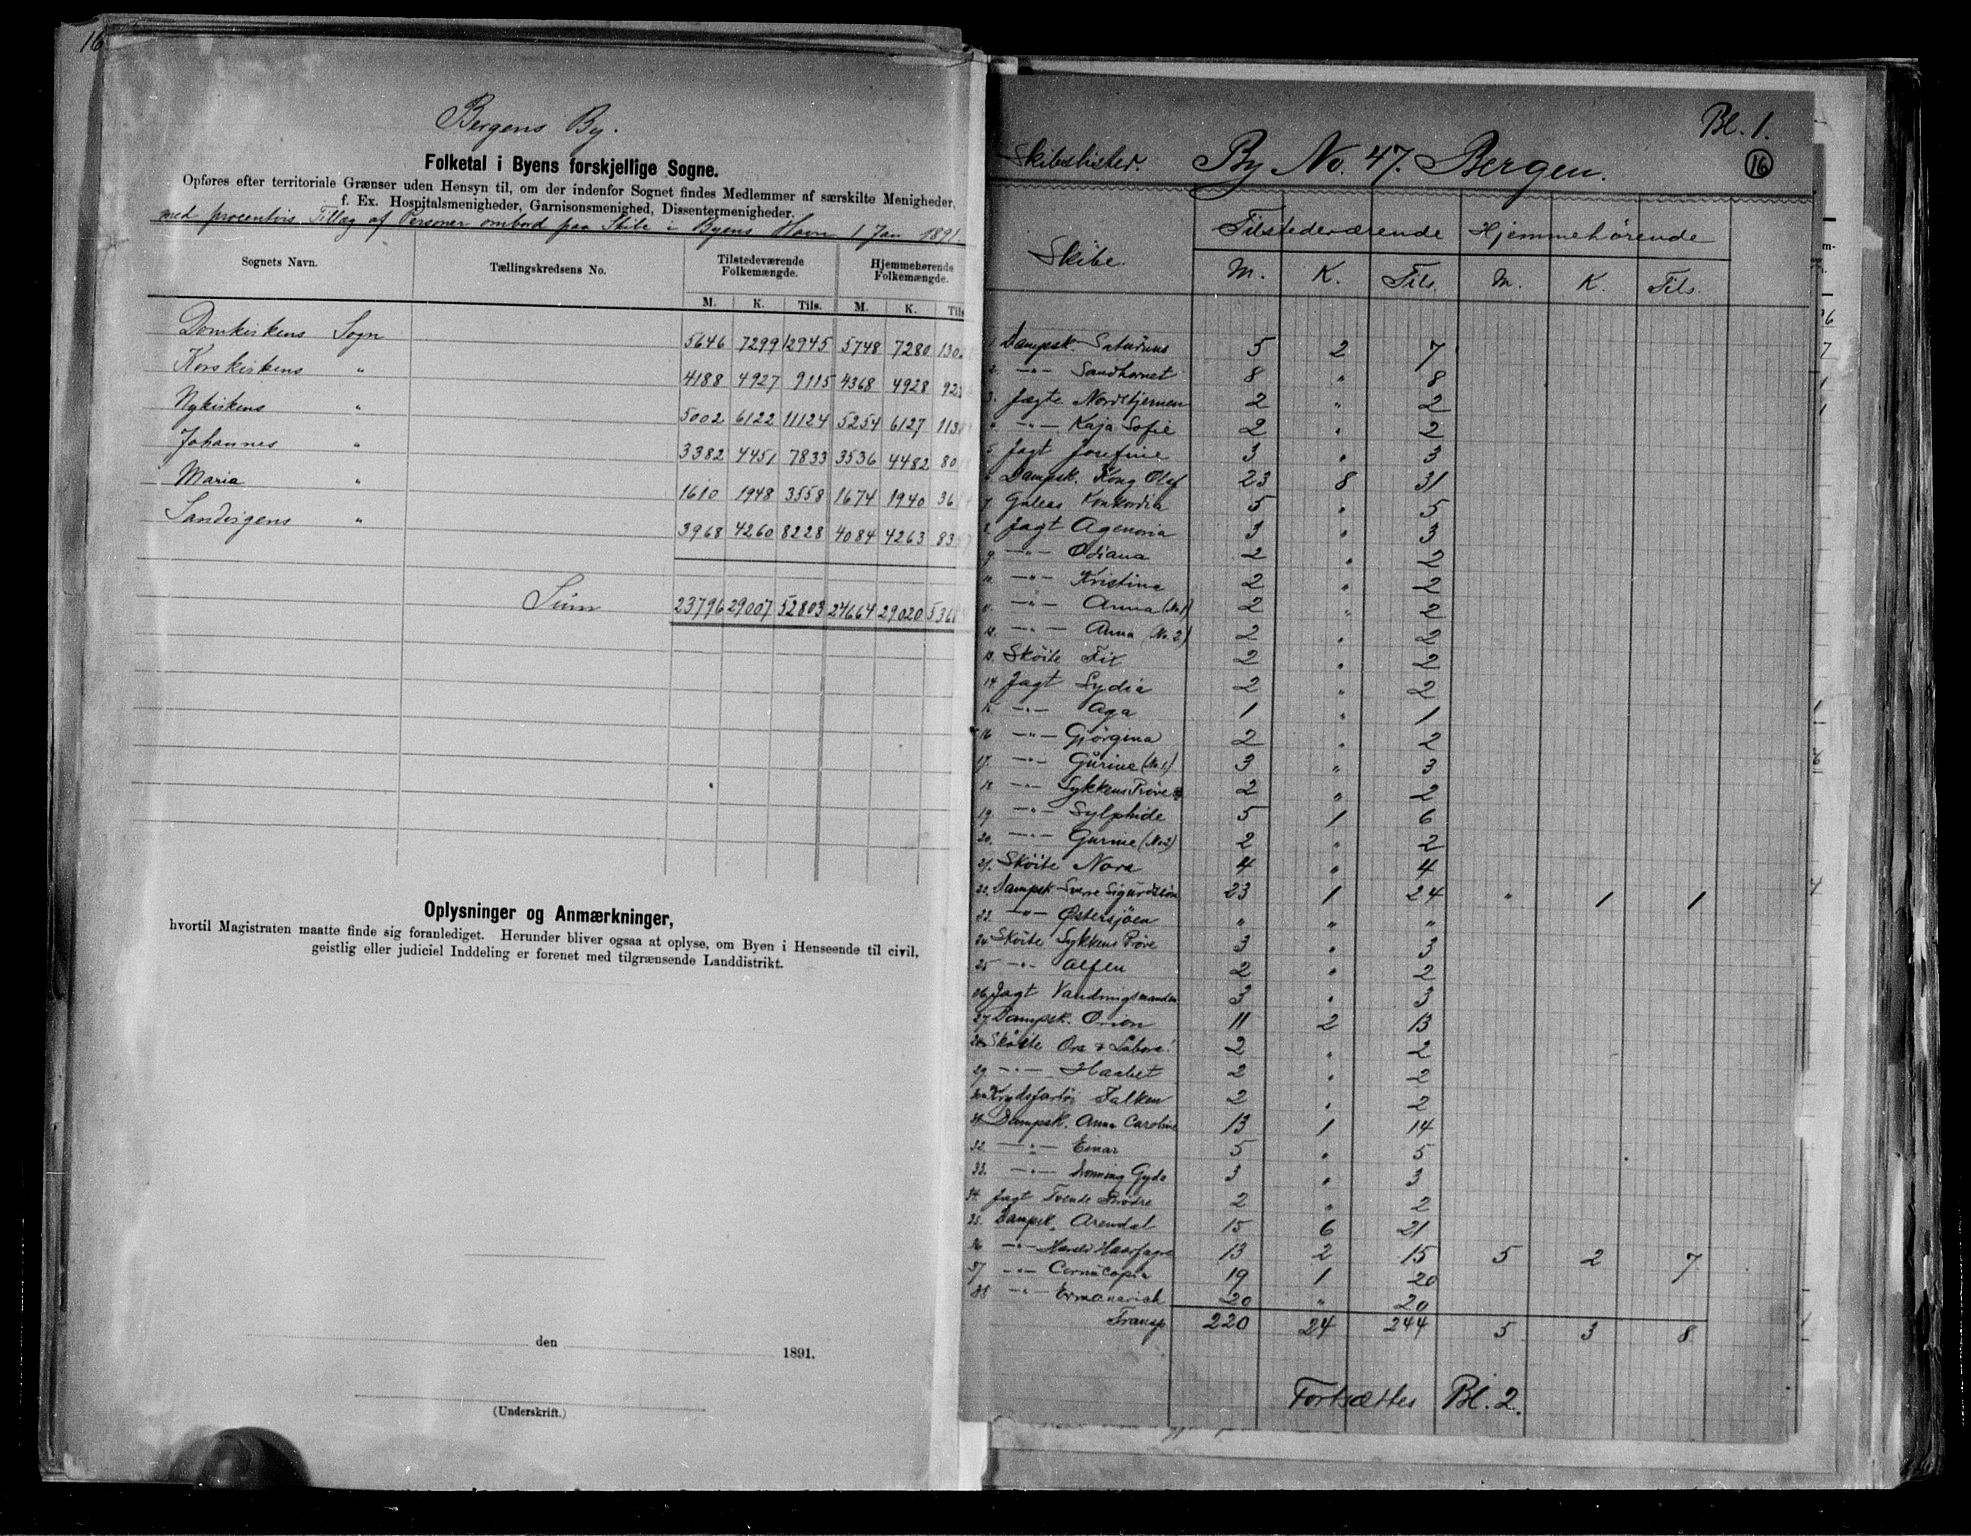 16
Bergens By.
Folketal i Byens forskjellige Sogne.
Opføres efter territoriale Grænser uden Hensyn til, om der indenfor Sognet findes Medlemmer af særskilte Menigheder,
f. Ex. Hospitalsmenigheder, Garnisonsmenighed, Dissentermenigheder.
med procentvis Tillæg af Personer ombord paa Skibe i Byens Havn 1 Jan 1891
Sognets Navn. Tællingskredsens No. Tilstedeværende Folkemængde. Hjemmehørende Folkemængde.
M. K. Tils. M. K. Tils
Domkirkens Sogn 5646 7299 12945 5748 7280 130
Korskirkens " 4188 4927 9115 4368 4928 92
Nykirkens " 5002 6122 11124 5254 6127 113
Johannes " 3382 4451 7833 3536 4482 80
Maria " 1610 1948 3558 1674 1940 36
Sandvigens " 3968 4260 8228 4084 4263 83
Sum 23796 29007 52803 24664 29020 536
Oplysninger og Anmærkninger,
hvortil Magistraten maatte finde sig foranlediget. Herunder bliver ogsaa at oplyse, om Byen i Henseende til civil,
geistlig eller judiciel Inddeling er forenet med tilgrænsende Landdistrikt.
den 1891.
(Underskrift.)
Bl. 1.
Skibslister. By No. 47. Bergen. 16
Skibe Tilstedeværende Hjemmehørende
M. K. Tils. M. K. Tils
1. Dampsk. Saturnus 5 2 7
2. —"— Sandhornet 8 " 8
3. Jagte Nordstjernen 2 " 2
4. —"— Kaja Sofie 2 " 2
5. Jagt Josefine 3 " 3
6. Dampsk. Kong Olaf 23 8 31
7. Galeas Konkordia 5 " 5
8. Jagt Agenoria 3 " 3
9. —"— Ediana 2 " 2
10. —"— Kristina 2 " 2
11. —"— Anna (No. 1) 2 " 2
12. —"— Anna (No. 2) 2 " 2
13. Skøite Fix 2 " 2
14. Jagt Lydia 2 " 2
15. —"— Aga 1 " 1
16 —"— Gjørgina 2 " 2
17. —"— Gurine (No 1) 3 " 3
18 —"— Lykkens Prøve 2 " 2
19. —"— Sylphide 5 1 6
20. —"— Gurine (No 2) 2 " 2
21. Skøite Nora 4 " 4
22. Dampsk Sverre Sigurdssøn 23 1 24 " 1 1
23. —"— Østersjøen " " "
24 Skøite Lykkens Prøve 3 " 3
25 —"— Alfen 2 " 2
26. Jagt Vandringsmanden 3 " 3
27. Dampsk. Orion 11 2 13
28 Skøite Ora & Labora! 2 " 2
29. —"— Haabet 2 " 2
30 Krydsfartøi Falken 2 " 2
31 Dampsk. Anna Caroline 13 1 14
32. —"— Einar 5 " 5
33. —"— Dronning Gyda 3 " 3
34. Jagt Tvende Brødre 2 " 2
35. Dampsk. Arendal 15 6 21
36 —"— Harald Haarfagre 13 2 15 5 2 7
37 —"— Cornucopia 19 1 20
38 —"— Ermanarich 20 " 20
Transp 220 24 244 5 3 8
Fortsættes Bl. 2.